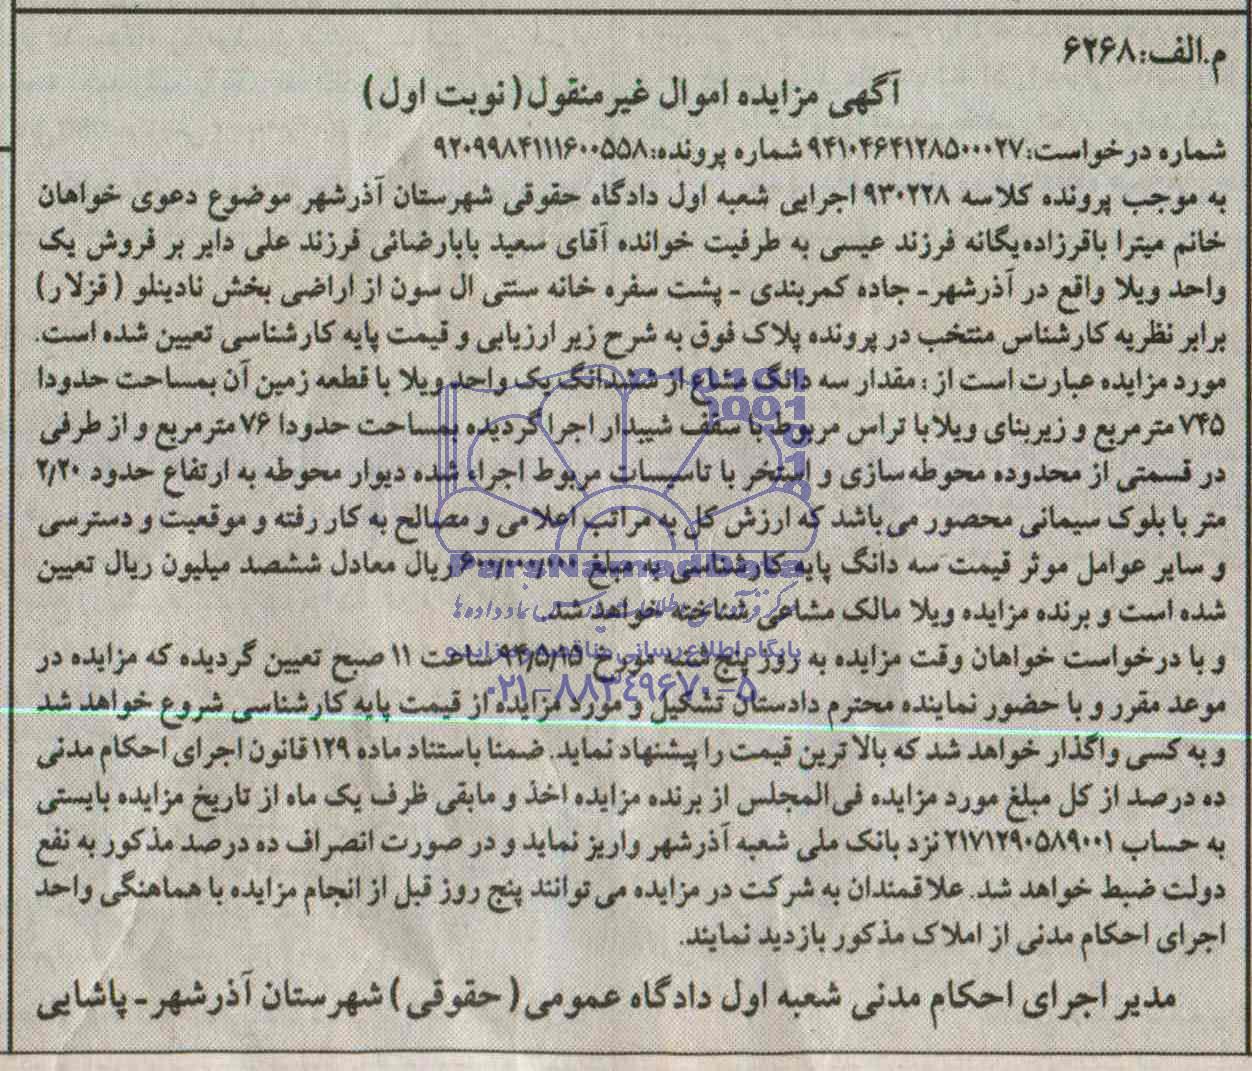 م.الف:۶۲۶۸
آگهی مزایده اموال غیرمنقول(نوبت اول)
شماره درخواست:۹۴۱۰۴۶۴۱۲۸۵۰۰۰۲۷ شماره پرونده:۹۲۰۹۹۸۴۱۱۱۶۰۰۵۵۸
به موجب پرونده کلاسه ۹۳۰۲۲۸ اجرایی شعبه اول دادگاه حقوقی شهرستان آذرشهر موضوع دعوی خواهان
خانم میترا باقرزاده‌یگانه فرزند عیسی به طرفیت خوانده آقای سعید بابارضائی فرزند علی دایر بر فروش یک
واحد ویلا واقع در آذرشهر- جاده کمربندی - پشت سفره خانه سنتی ال سون از اراضی بخش نادینلو (قزلار)
برابر نظریه کارشناس منتخب در پرونده پلاک فوق به شرح زیر ارزیابی و قیمت پایه کارشناسی تعیین شده است.
مورد مزایده عبارت است از: مقدار سه دانگ مشاع از ششدانگ یک واحد ویلا با قطعه زمین آن بمساحت حدودا
۷۴۵ مترمربع و زیربنای ویلا با تراس مربوط با سقف شیبدار اجرا گردیده بمساحت حدودا ۷۶ مترمربع و از طرفی
در قسمتی از محدوده محوطه‌سازی و استخر با تاسیسات مربوط اجراء شده دیوار محوطه به ارتفاع حدود ۲/۲۰
متر با بلوک سیمانی محصور می‌باشد که ارزش کل به مراتب اعلامی و مصالح به کار رفته و موقعیت و دسترسی
و سایر عوامل موثر قیمت سه دانگ پایه کارشناسی به مبلغ ۶۰۰/۰۰۰/۰۰۰ ریال معادل ششصد میلیون ریال تعیین
شده است و برنده مزایده ویلا مالک مشاعی شناخته خواهد شد.
و با درخواست خواهان وقت مزایده به روز پنج‌شنبه مورخ ۹۴/۵/۱۵ ساعت ۱۱ صبح تعیین گردیده که مزایده در
موعد مقرر و با حضور نماینده محترم دادستان تشکیل و مورد مزایده از قیمت پایه کارشناسی شروع خواهد شد
و به کسی واگذار خواهد شد که بالاترین قیمت را پیشنهاد نماید. ضمنا باستناد ماده ۱۲۹ قانون اجرای احکام مدنی
ده درصد از کل مبلغ مورد مزایده فی‌المجلس از برنده مزایده اخذ و مابقی ظرف یک ماه از تاریخ مزایده بایستی
به حساب ۲۱۷۱۲۹۰۵۸۹۰۰۱ نزد بانک ملی شعبه آذرشهر واریز نماید و در صورت انصراف ده درصد مذکور به نفع
دولت ضبط خواهد شد. علاقمندان به شرکت در مزایده می‌توانند پنج روز قبل از انجام مزایده با هماهنگی واحد
اجرای احکام مدنی از املاک مذکور بازدید نمایند.
مدیر اجرای احکام مدنی شعبه اول دادگاه عمومی (حقوقی) شهرستان آذرشهر- پاشایی
ParsNamadData
پایگاه اطلاع رسانی مناقصه و مزایده
۰۲۱-۸۸۳۴۹۶۷۰-۵